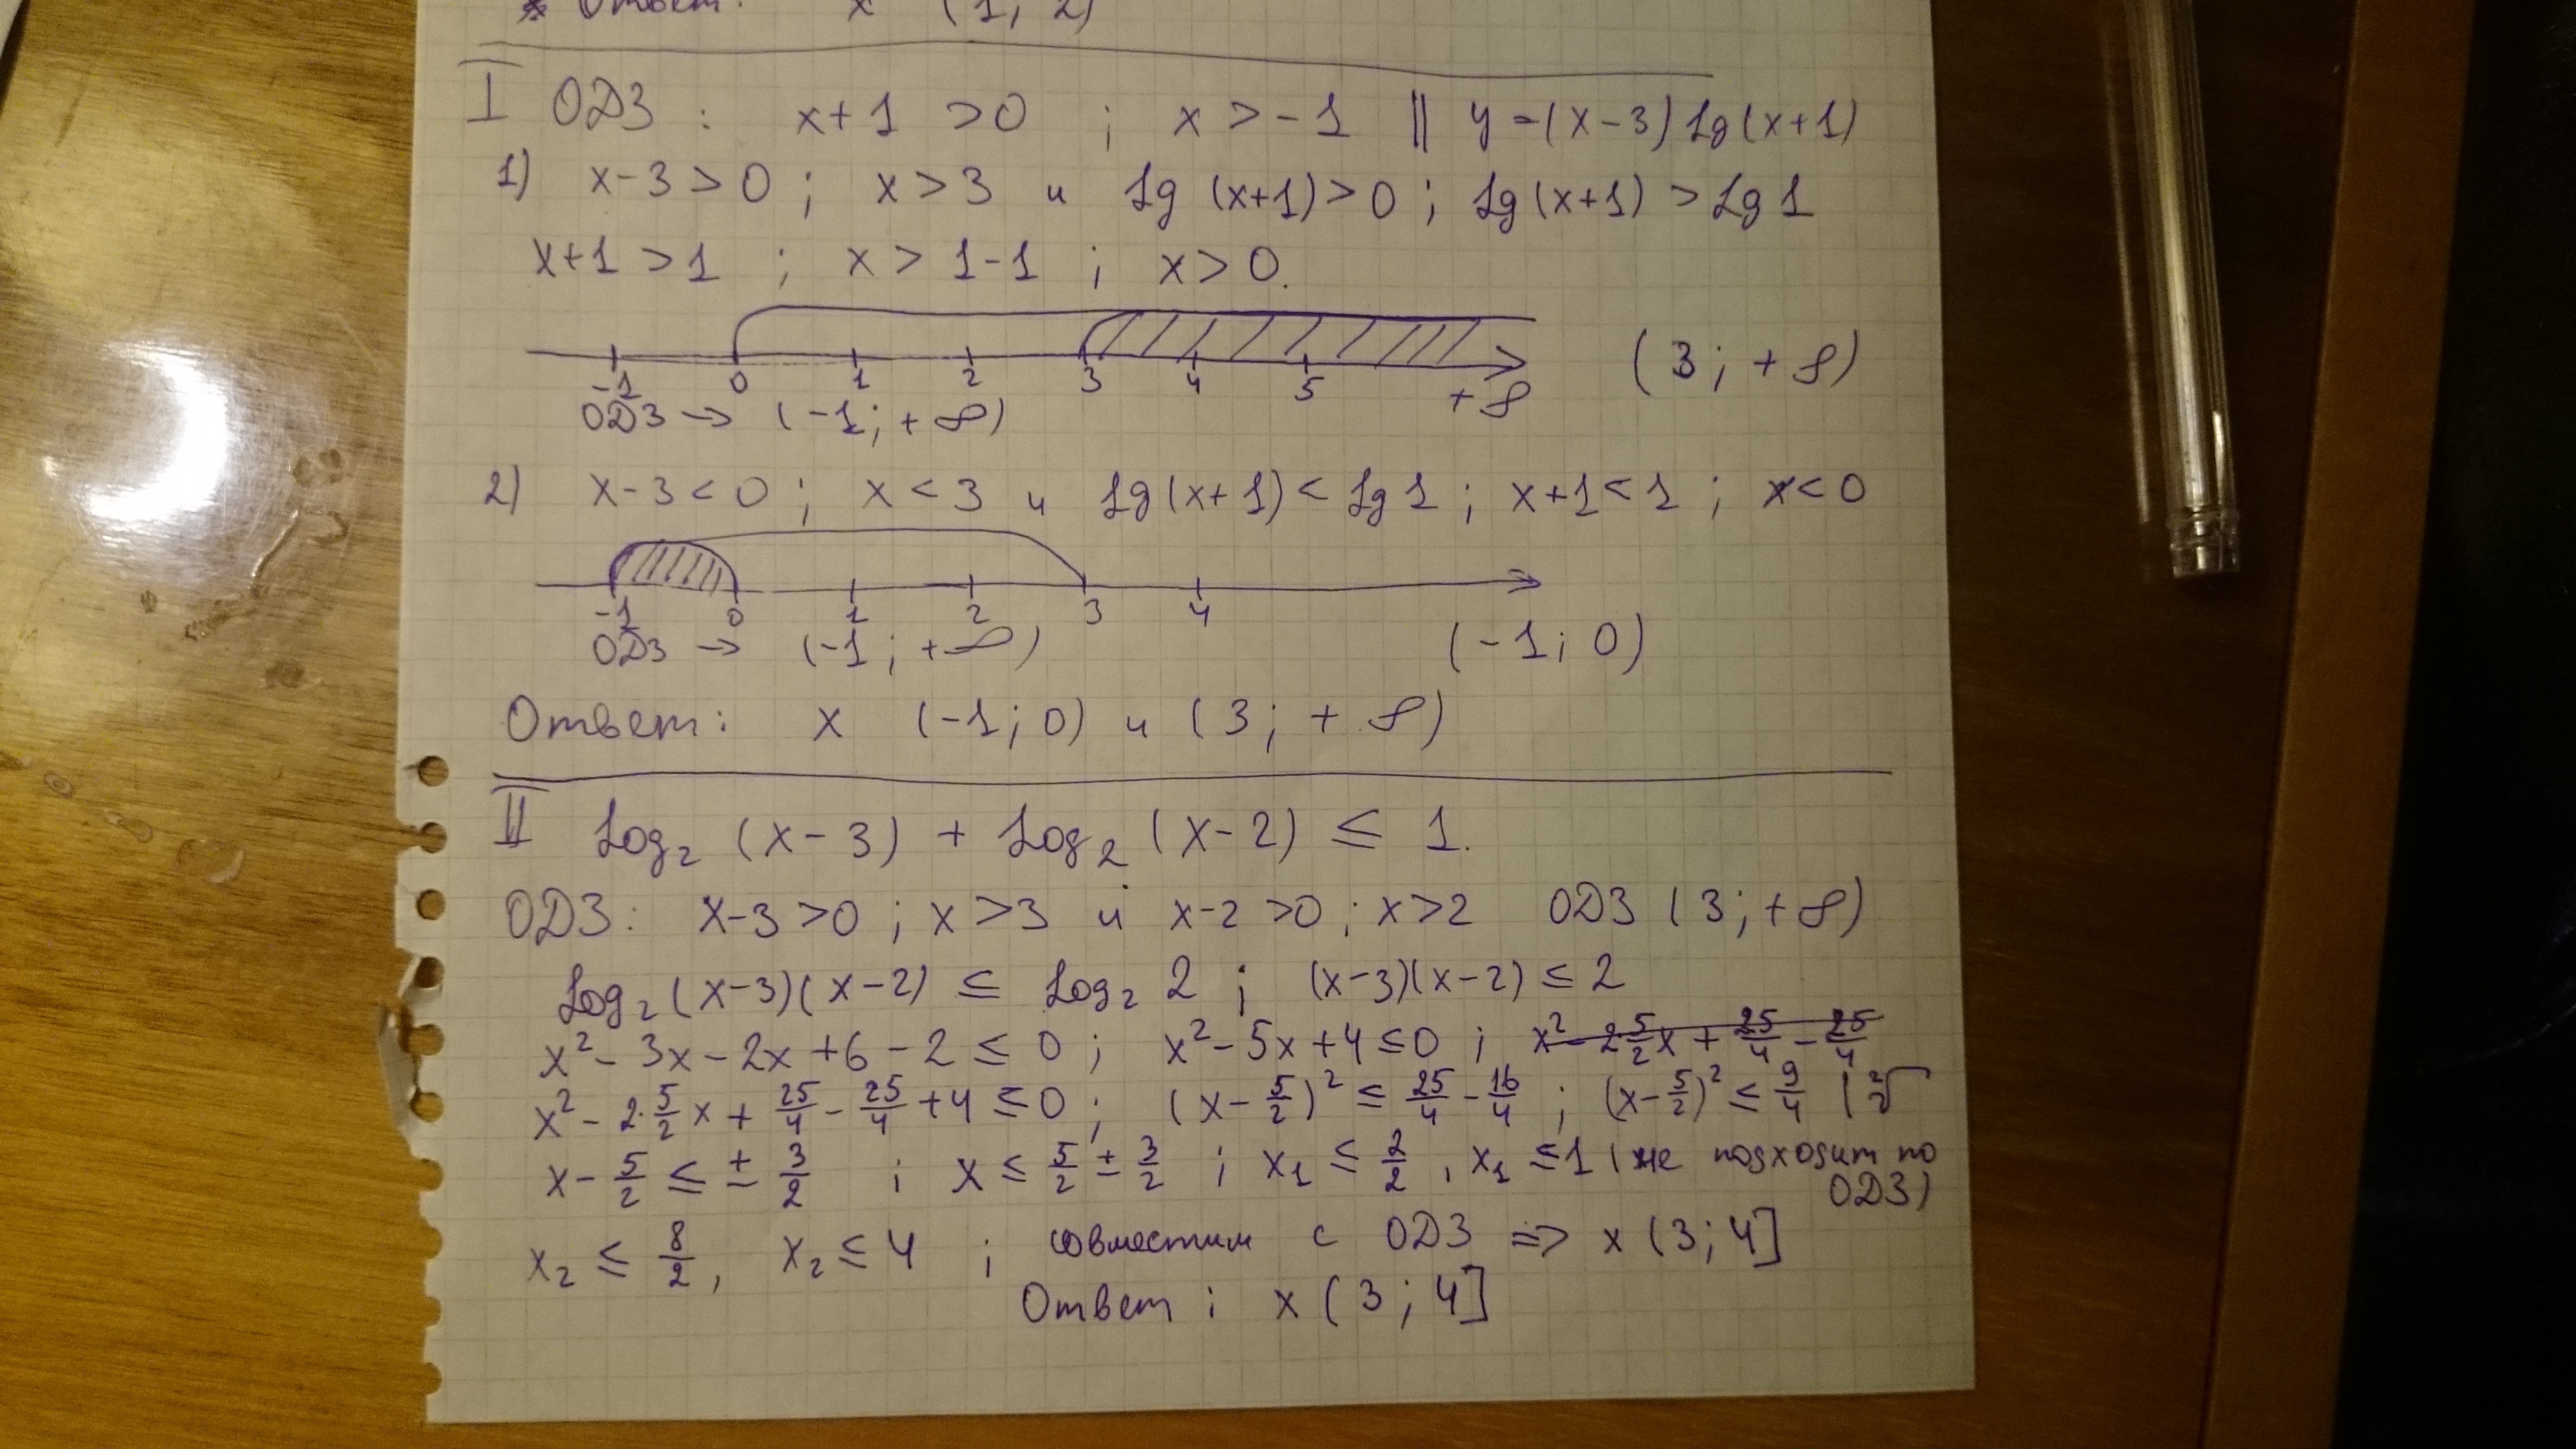 Ответ: x (1; 2)
I ОДЗ : x+1 >0 ; x >-1 || y=(x-3) Lg(x+1)
1) x-3>0 ; x>3 и Lg (x+1)>0 ; Lg(x+1) >Lg1
x+1 >1 ; x> 1-1 ; x>0.
-1 0 1 2 3 4 5 +∞ (3 ; +∞)
ОДЗ → (-1; +∞)
2) x-3<0 ; x<3 и Lg(x+1)< Lg1 ; x+1<1 ; x<0
-1 0 1 2 3 4
ОДЗ → (-1 ; +∞) (-1; 0)
Ответ: x (-1; 0) и (3; +∞)
II Log₂ (x-3) + Log₂ (x-2) ≤ 1.
ОДЗ: x-3>0 ; x>3 и x-2>0 ; x>2 ОДЗ (3; +∞)
Log₂(x-3)(x-2) ≤ Log₂ 2 ; (x-3)(x-2) ≤ 2
x²-3x-2x+6-2 ≤ 0 ; x²-5x+4≤0 ; x²-2 5/2 x + 25/4 - 25/4
x²-2·5/2 x + 25/4 - 25/4 +4 ≤0 ; (x-5/2)² ≤ 25/4 - 16/4 ; (x-5/2)² ≤ 9/4 | ²√
x-5/2 ≤ ± 3/2 ; x ≤ 5/2 ± 3/2 ; x₁ ≤ 2/2 , x₁ ≤1 (не подходит по
ОДЗ)
x₂ ≤ 8/2 , x₂ ≤ 4 ; совместим с ОДЗ => x (3; 4]
Ответ : x (3 ; 4]